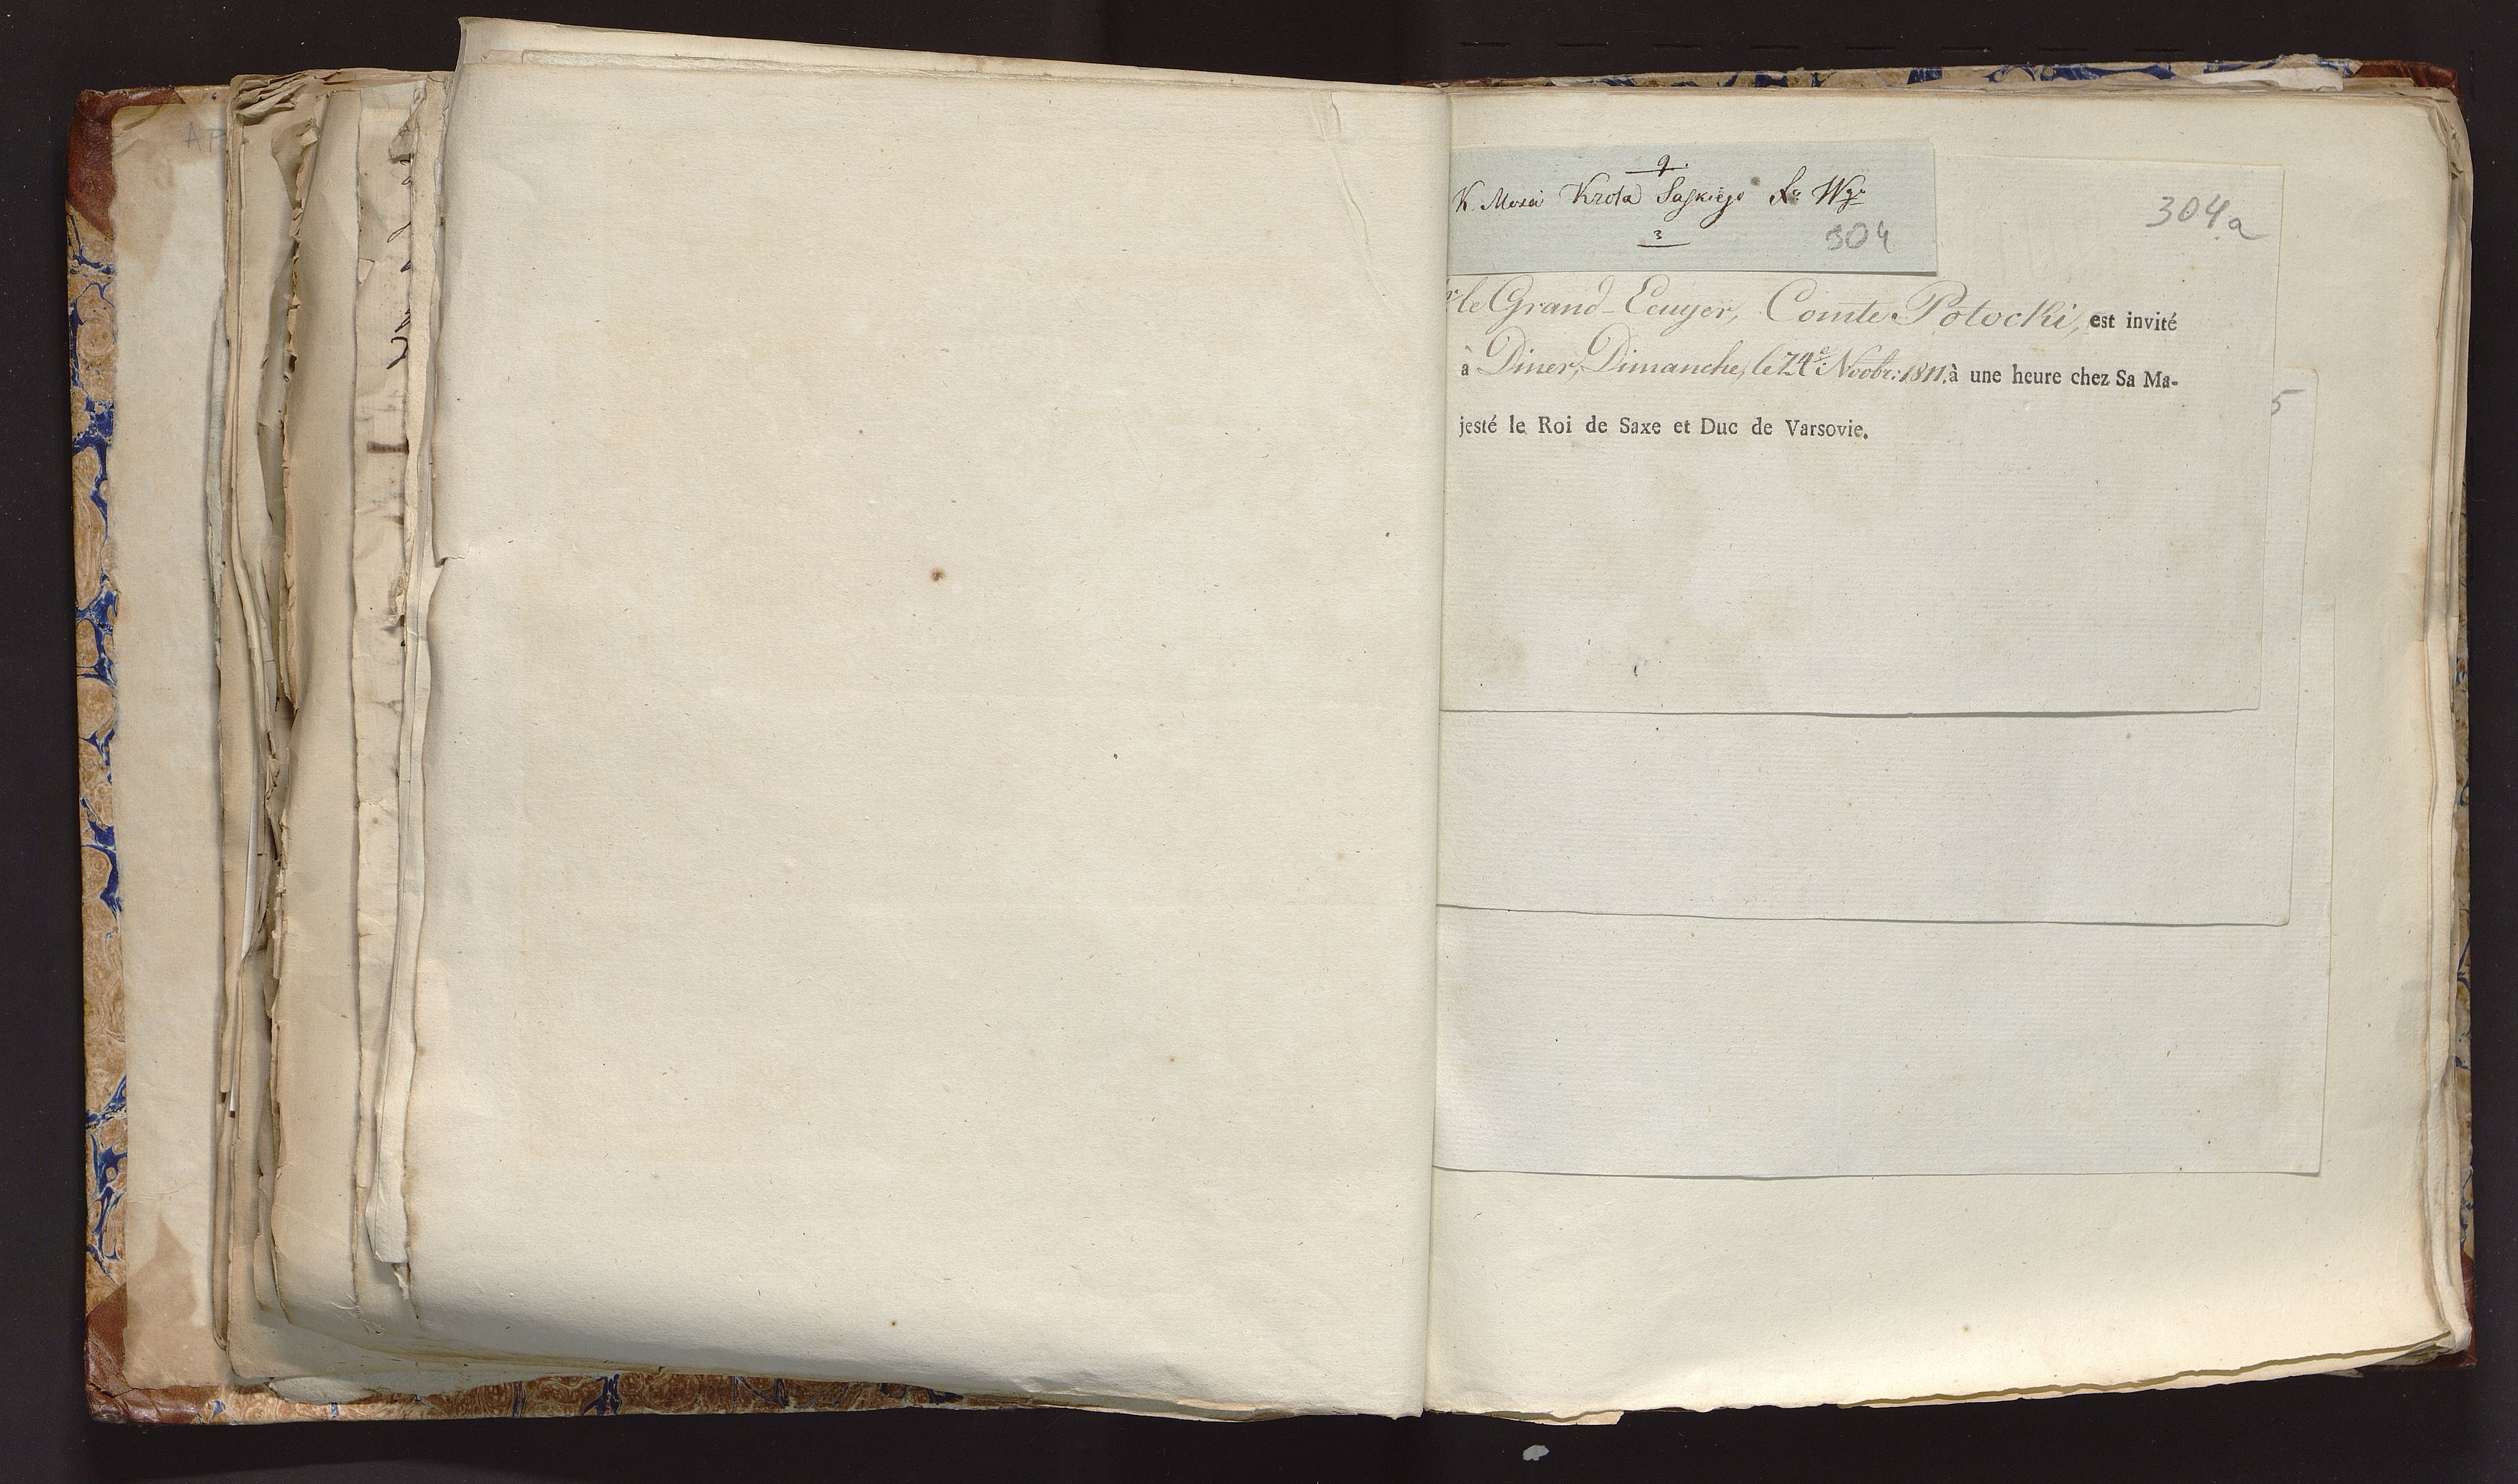 9.
K. Mosci Krola Saskiego X: Wgo
3
304
304a
r le Grand-Ecuyer, Comte Potocki, est invité
à Diner, Dimanche, le 24e Novbr: 1811. à une heure chez Sa Ma-
jesté le Roi de Saxe et Duc de Varsovie.
5
AP